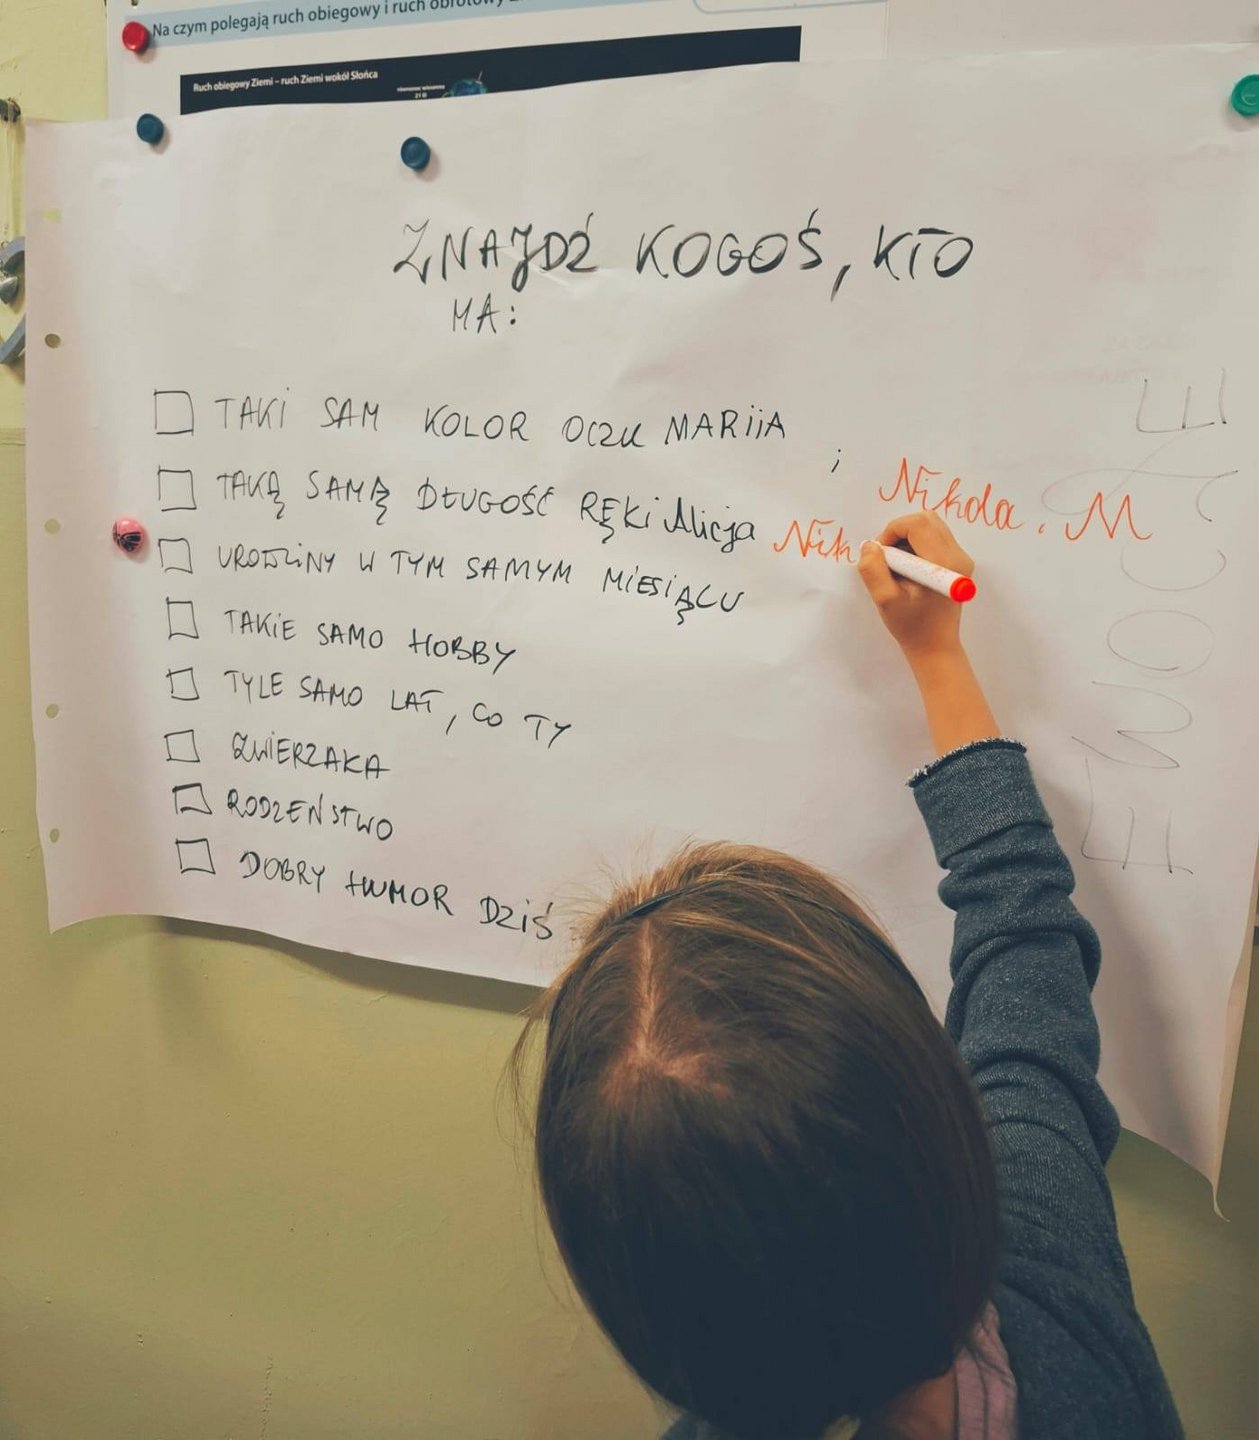 Na czym polegają ruch obiegowy i ruch obrotowy
Ruch obiegowy Ziemi – ruch Ziemi wokół Słońca
ZNAJDŹ KOGOŚ, KTO
MA:
TAKI SAM KOLOR OCZU MARiiA
; Nikola. M
TAKĄ SAMĄ DŁUGOŚĆ RĘKi Alicja Nik
URODZiNY W TYM SAMYM MIESIĄCU
TAKIE SAMO HOBBY
TYLE SAMO LAT, CO TY
ZWIERZAKA
RODZEŃSTWO
DOBRY HUMOR DZiŚ
EMOCJE